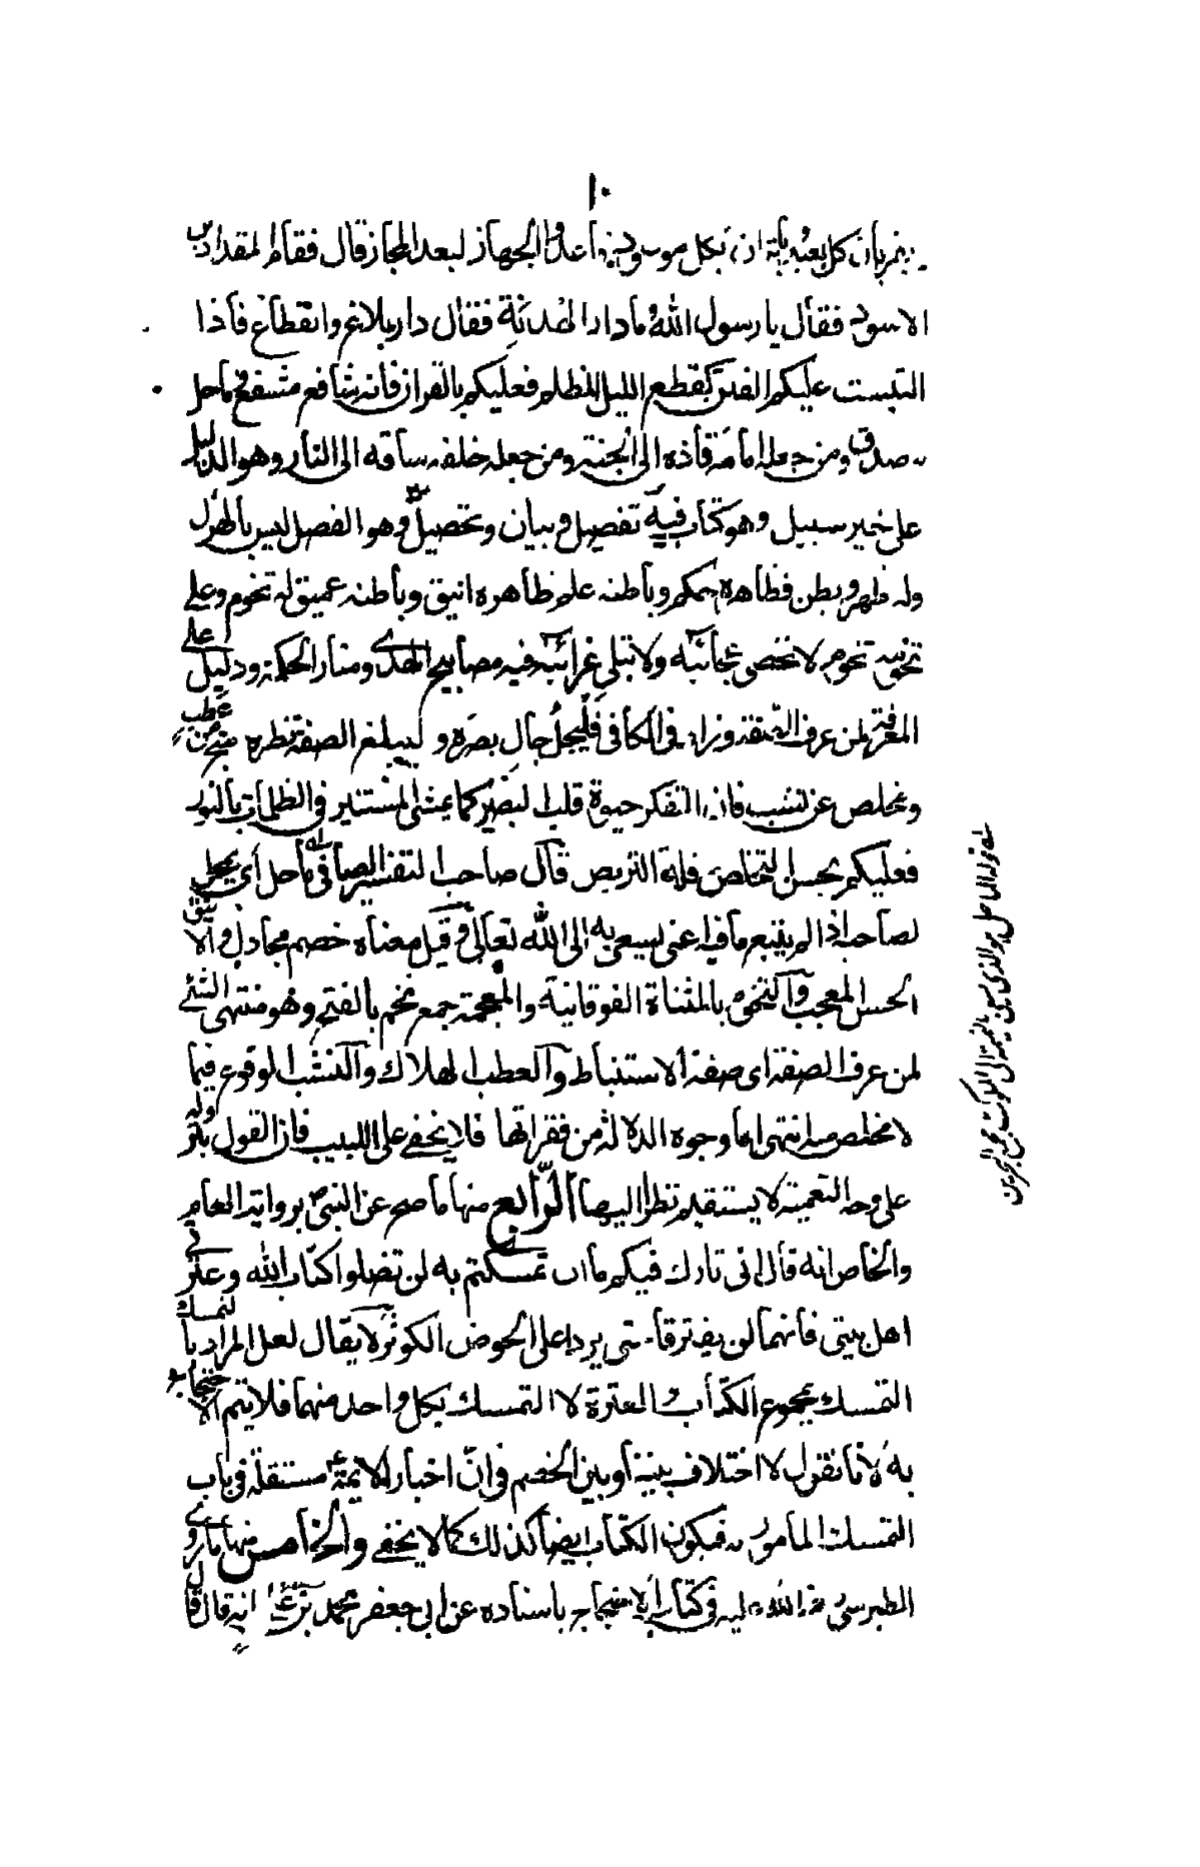 ١٠
يقربان كل بعيد ويأتيان بكل موعود فأعدوا الجهاز لبعد المجاز قال فقام المقداد بن
الاسود فقال يا رسول الله ما دار الهدنة فقال دار بلاغ وانقطاع فاذا
التبست عليكم الفتن كقطع الليل المظلم فعليكم بالقران فانه شافع مشفع وماحل
مصدق ومن جعله امامه قاده الى الجنة ومن جعله خلفه ساقه الى النار وهو الدليل
على خير سبيل وهو كتاب فيه تفصيل وبيان وتحصيل وهو الفصل ليس بالهزل
وله ظهر وبطن فظاهره حكم وباطنه علم ظاهره انيق وباطنه عميق له تخوم وعلى
تخومه تخوم لا تحصى عجائبه ولا تبلى غرائبه فيه مصابيح الهدى ومنار الحكمة ودليل على
المعرفة لمن عرف الصفة وزاد فى الكافى فليجل جال بصره وليبلغ الصفة نظره ينج من عطب
ويخلص من نشب فان التفكر حيوة قلب البصير كما يمشى المستنير فى الظلمات بالنور
فعليكم بحسن التخلص وقلة التربص قال صاحب التفسير الصافى ماحل أى يمحل
لصاحبه اذا لم يتبع ما فيه اعنى يسعى به الى الله تعالى وقيل معناه خصم مجادل والانيق
الحسن المعجب والتخوم بالمثناة الفوقانية والمعجمة جمع تخم بالفتح وهو منتهى الشئ
لمن عرف الصفة اى صفة الاستنباط والعطب الهلاك والنشب الوقوع فيما
لا مخلص منه انتهى اما وجوه الدلالة من فقراتها فلا يخفى على اللبيب فان القول بكونه
على وجه التعمية لا يستقيم نظرا اليها الرابع منها ما صح عن النبى ص برواية العام
والخاص انه قال انى تارك فيكم ما ان تمسكتم به لن تضلوا كتاب الله وعترتى
اهل بيتى فانهما لن يفترقا حتى يردا على الحوض الكوثر لا يقال لعل المراد بالتمسك
التمسك بمجموع الكتاب والعترة لا التمسك بكل واحد منهما فلا يتم الاحتجاج
به لانا نقول لا اختلاف بيننا وبين الخصم فى انّ اخبار الائمة ع مستقلة فى باب
التمسك المأمور به فيكون الكتاب ايضا كذلك كما لا يخفى والخامس منها ما روى
الطبرسى رحمة الله عليه فى كتاب الاحتجاج باسناده عن ابى جعفر محمد بن على ع انه قال قال
له قوله الماحل هو الذى يسعى بالنميمة الى الملوك مجمع البحرين